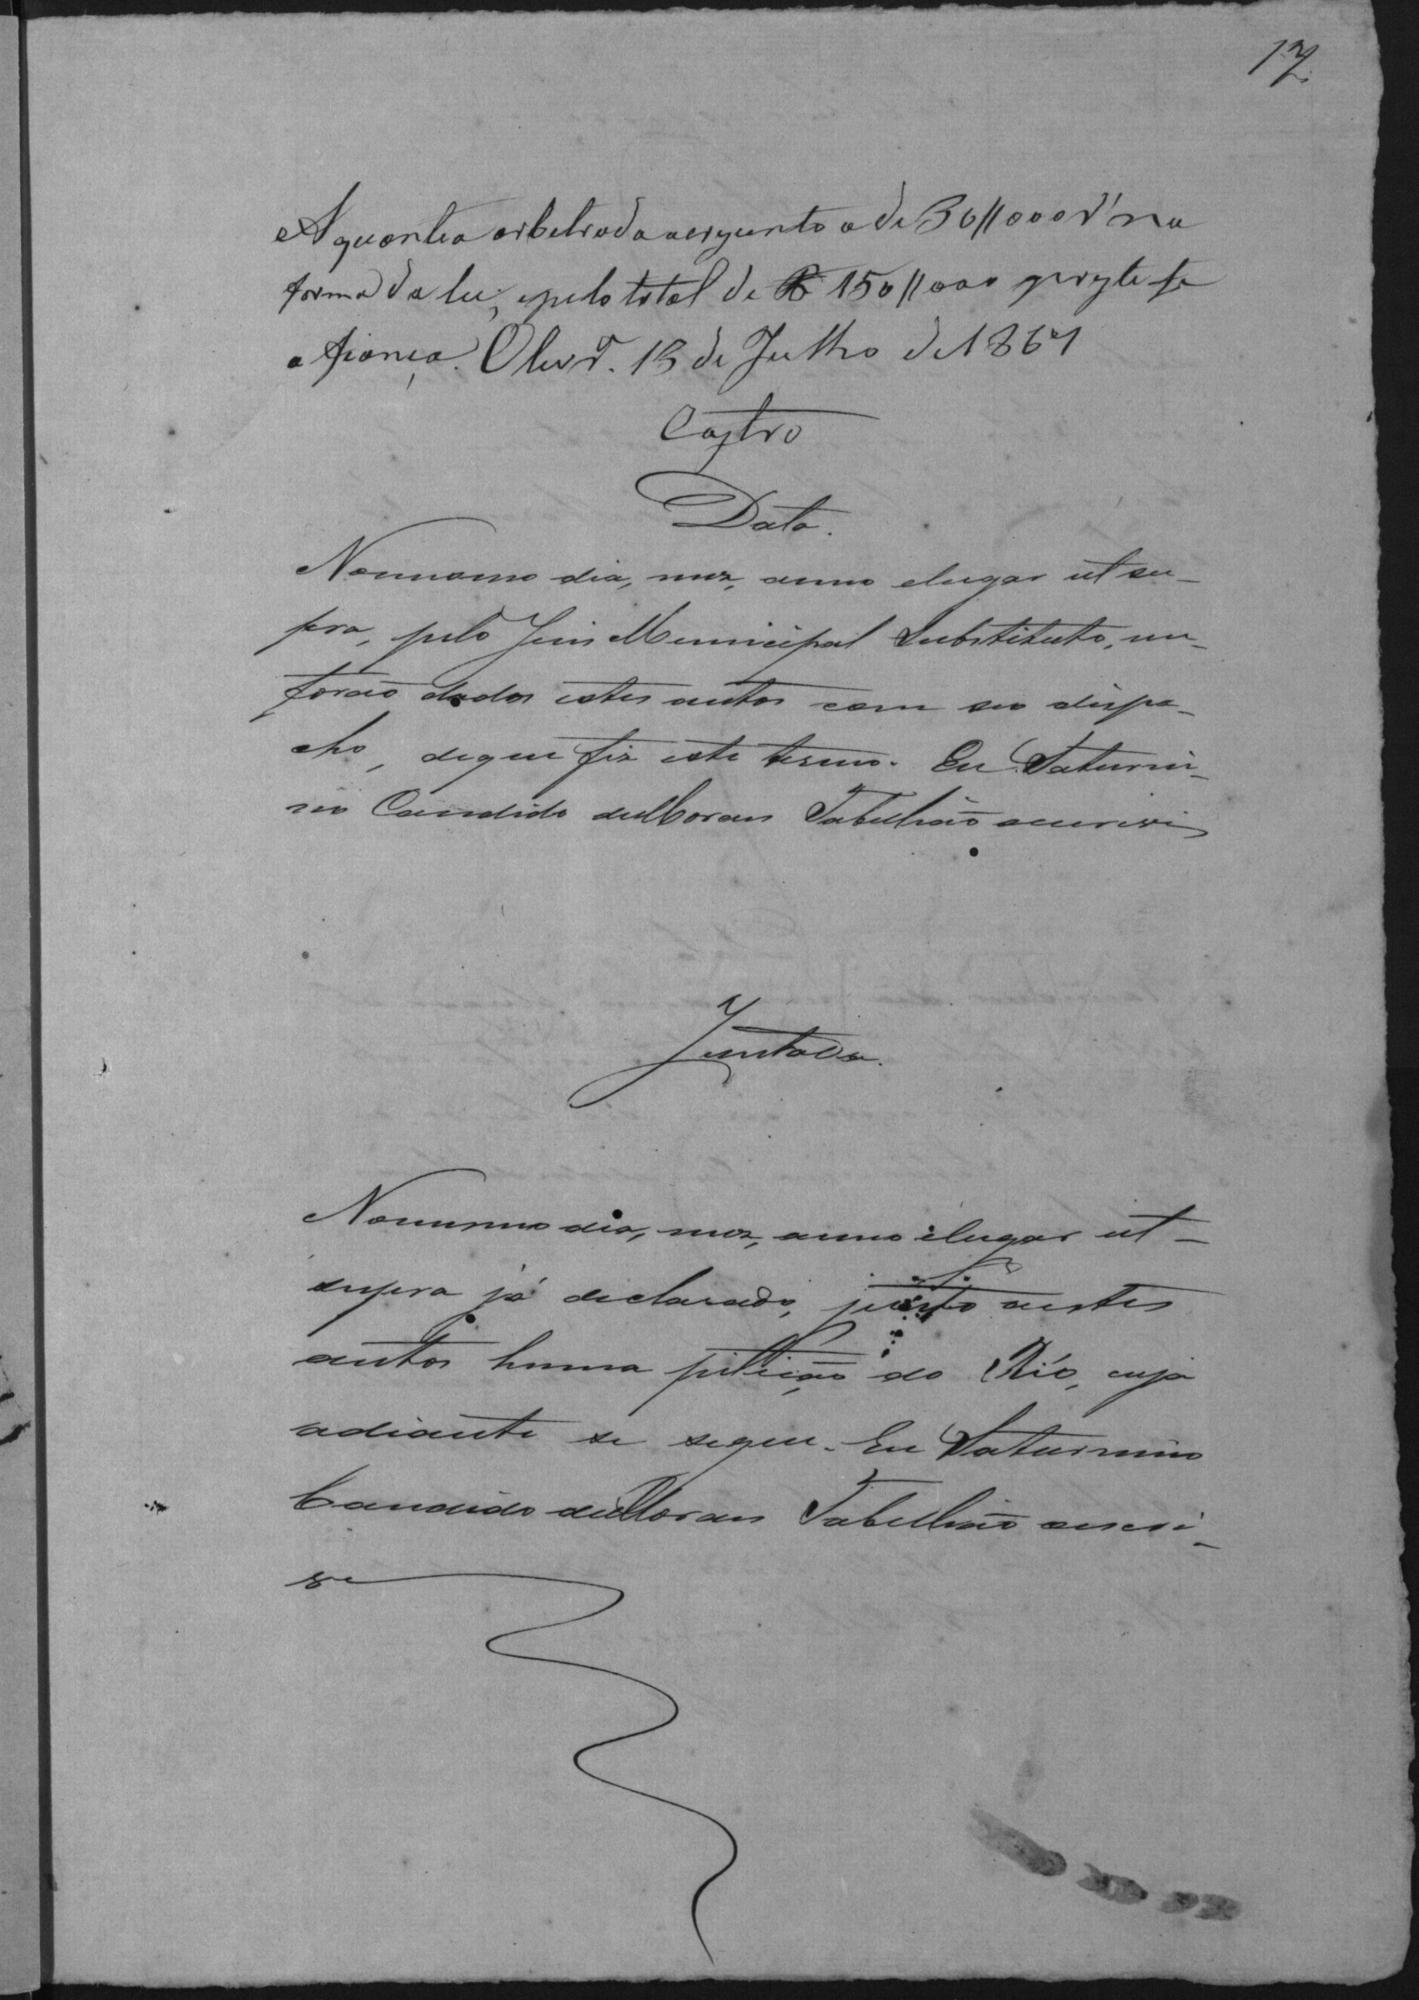 17
A quantia arbitrada acrescento a de 30//000 rs na
forma da lei, e pelo total de R 150//000 preste se
a fiança. Olivra. 13 de Julho de 1867
Castro
Data.
No mesmo dia, mez, anno e lugar ut su-
pra, pelo Juis Municipal Substituto, me
forão dados estes autos com seo dispa-
cho, de que fiz este termo. Eu Saturni-
no Candido de Moraes Tabelião escrevi
Juntada.
No mesmo dia, mez, anno e lugar ut
supra já declarado, junto a estes
autos huma petição do Réo, cuja
adiante se segue. Eu Saturnino
Candido de Moraes Tabellião escre-
ve